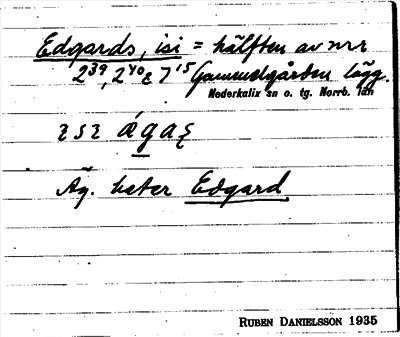 Edgards, isi = hälften av nrr
2³⁹, 2⁴⁰ & 7¹⁵ Gammelgården lägg.
Nederkalix sn o. tg. Norrb. län
Äg. heter Edgard
RUBEN DANIELSSON 1935